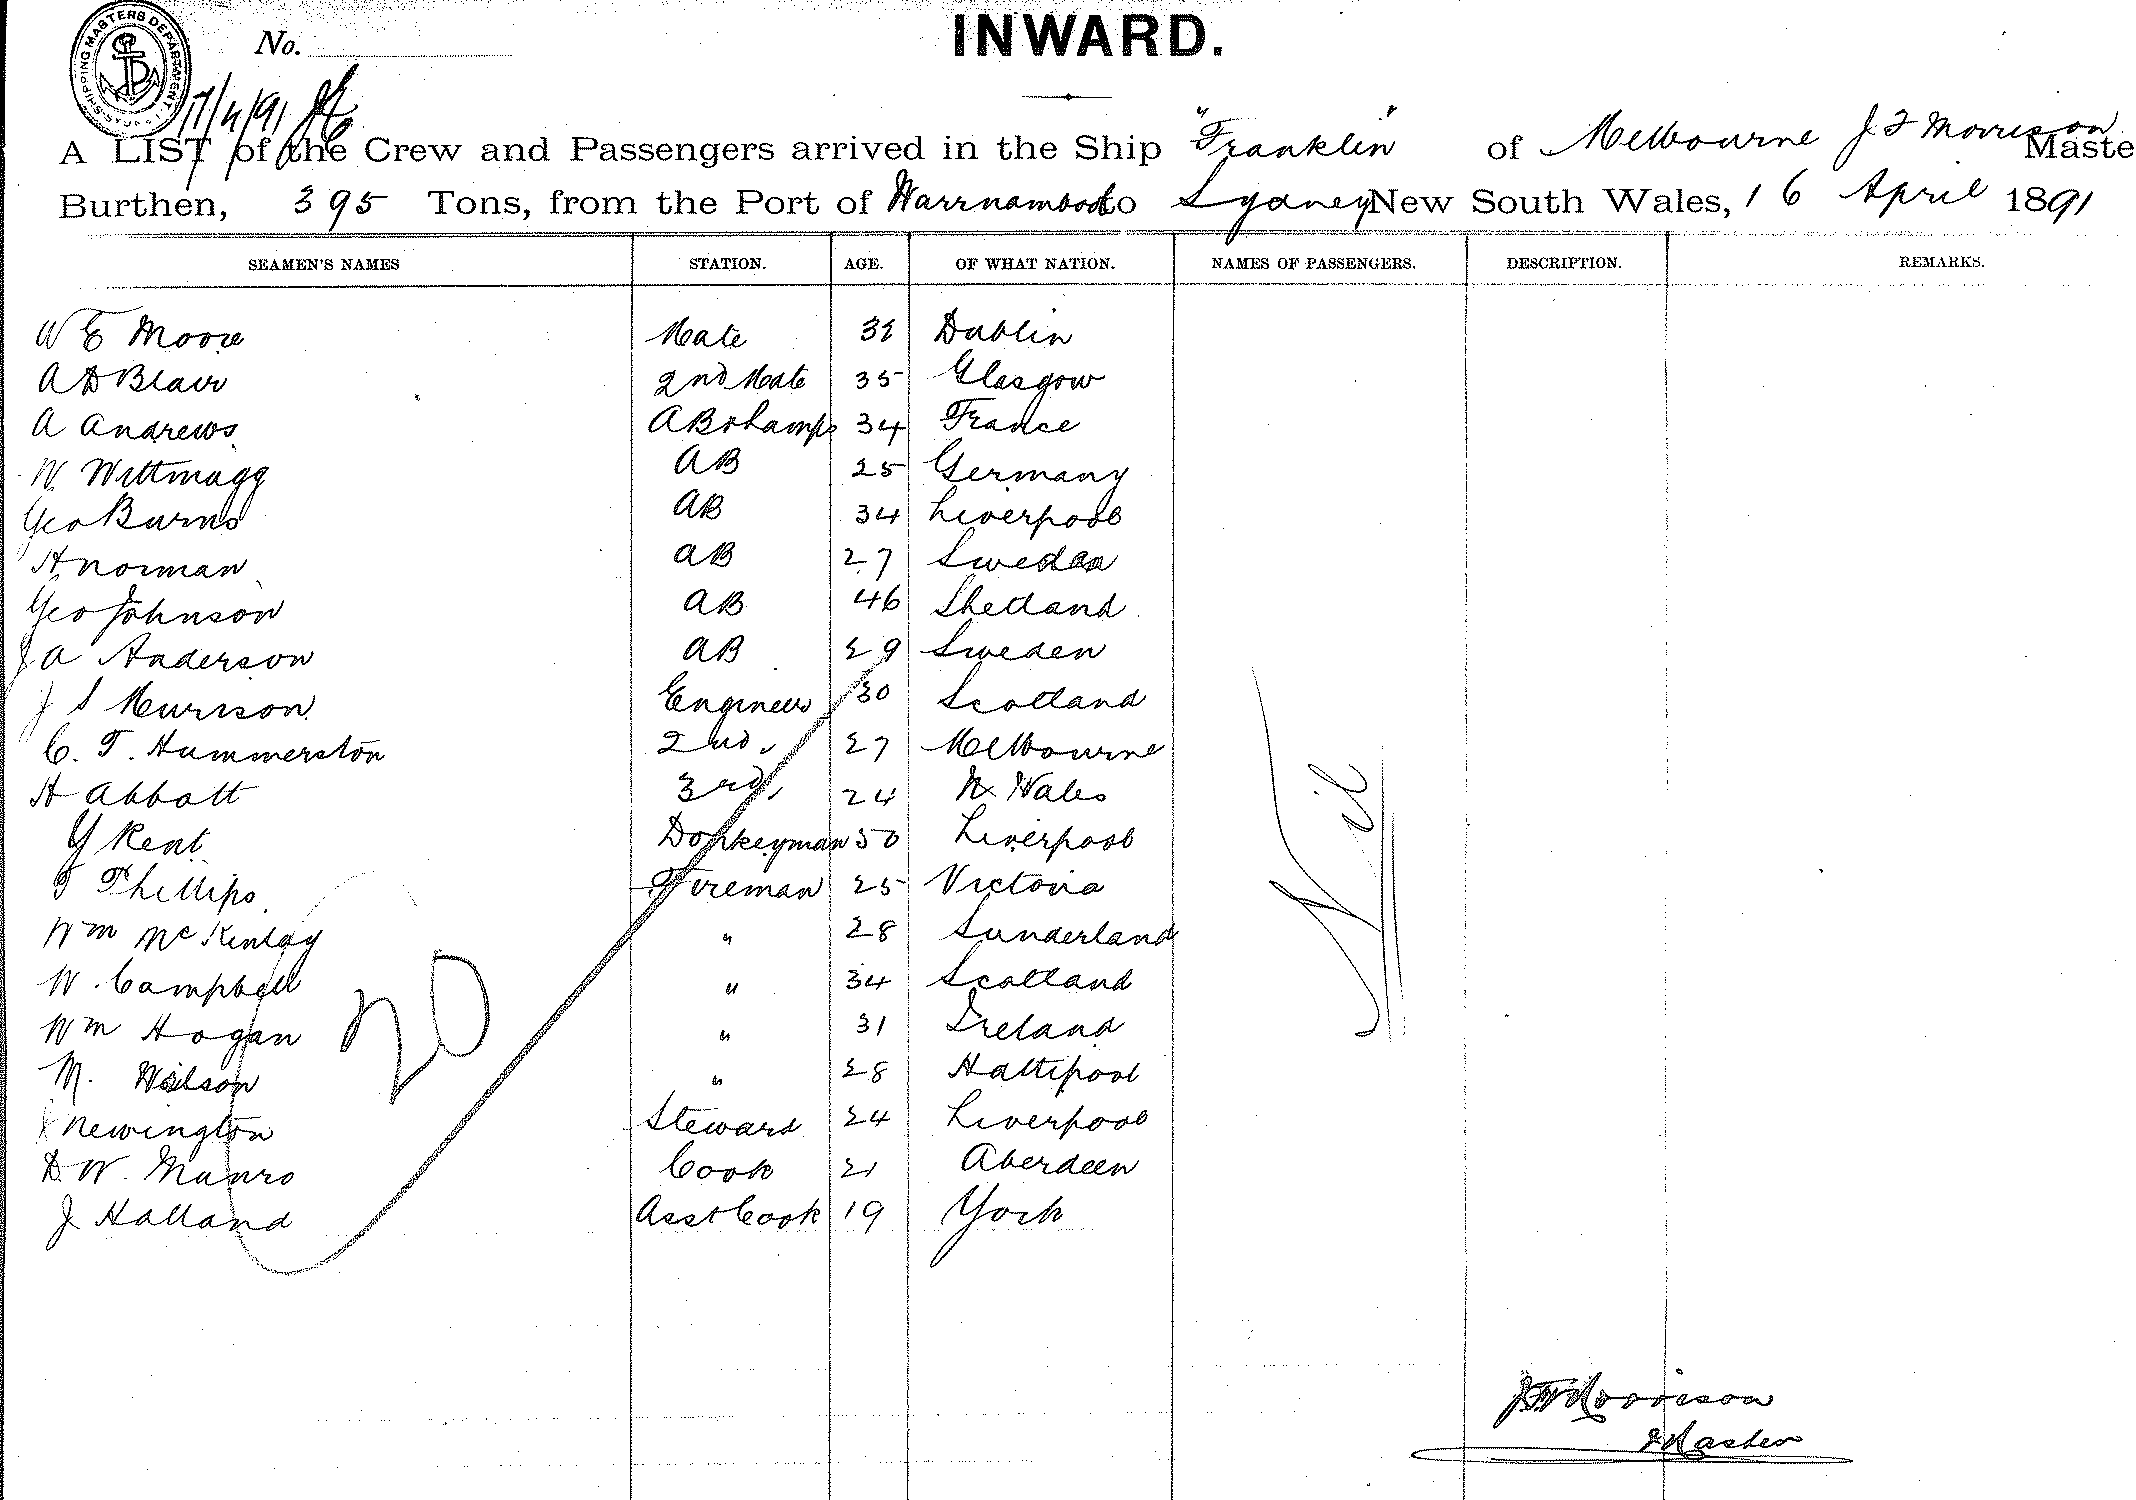 SHIPPING MASTERS DEPARTMENT
No.
INWARD.
17/4/91
A LIST of the Crew and Passengers arrived in the Ship "Franklin" of Melbourne J F Morrison Maste
Burthen, 395 Tons, from the Port of Warrnambool to Sydney New South Wales, 16 April 1891
SEAMEN'S NAMES STATION. AGE. OF WHAT NATION. NAMES OF PASSENGERS. DESCRIPTION. REMARKS.
W E Moore Mate 32 Dublin
A D Blair 2nd Mate 35 Glasgow
A Andrews AB & Lamps 34 France
W Wittmagg AB 25 Germany
Geo Burns AB 34 Liverpool
H Norman AB 27 Sweden
Geo Johnson AB 46 Shetland
J A Anderson AB 29 Sweden
J S Murison Engineer 30 Scotland
C. T. Hummerston 2nd " 27 Melbourne
H Abbott 3rd " 24 N. Wales
Y Kent Donkeyman 50 Liverpool
T Phillips Fireman 25 Victoria
Wm McKinlay " 28 Sunderland
W. Campbell " 34 Scotland
Wm Hogan " 31 Ireland
M. Wilson " 28 Hattipool
Newington Steward 24 Liverpool
D. W. Munro Cook 21 Aberdeen
J Holland Asst Cook 19 York
20
Nil
J F Morrison
Master